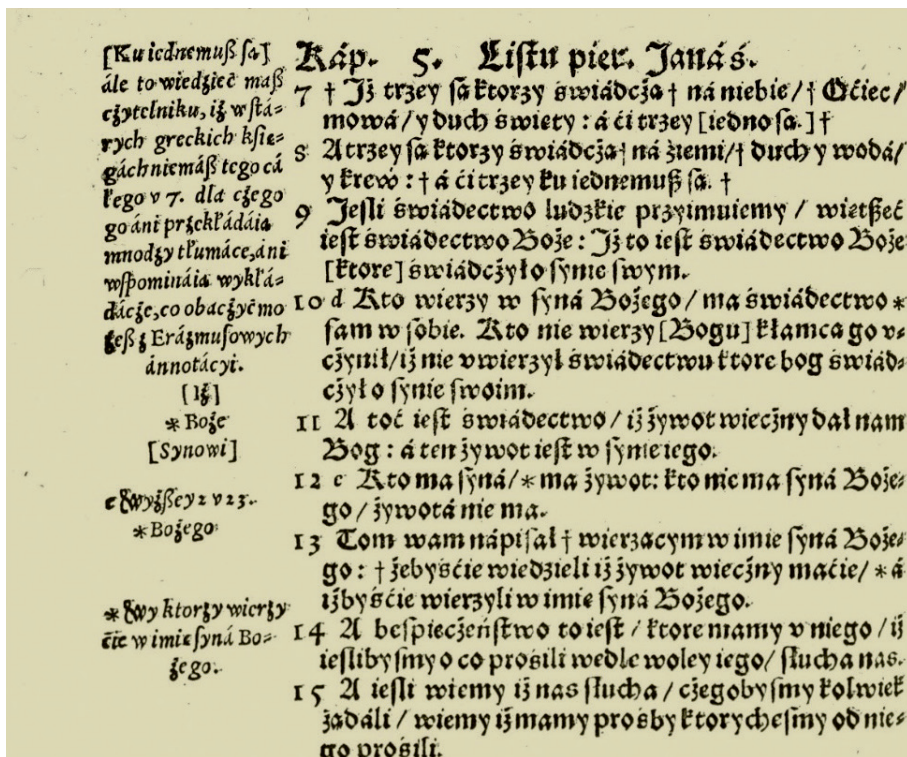 [Ku iednemuß są]
ále to wiedzieć maß
cżytelniku, iż w stá⸗
rych greckich kśię⸗
gách niemáß tego cá
łego v 7. dla cżego
go áni przekłádáią
mnodzy tłumácze, áni
wſpomináią wykłá⸗
dácże, co obacżyć mo
żeß z Erázmuſowych
ánnotácyi.
[Iż]
* Boże
[Synowi]
c Wyżßey 2 v 23.
* Bożego
* Wy ktorzy wierzy
ćie w imię ſyná Bo⸗
żego.
Káp. 5. Liſtu pier. Janáś.
7 † Iż trzey ſą ktorzy świádcżą † ná niebie/ † Oćiec/
mowá/ y duch święty : á ći trzey [iedno ſą.] †
8 A trzey ſą ktorzy świádcżą † ná źiemi/ † duch y wodá/
y krew : † á ći trzey ku iednemuß ſą. †
9 Jeſli świádectwo ludzkie przyimuiemy / wietßeć
ieſt świádectwo Boże : Iż to ieſt świádectwo Boże
[ktore] świádcżył o ſynie ſwym.
10 d Kto wierzy w ſyná Bożego/ ma świádectwo *
sam w ſobie. Kto nie wierzy [Bogu] kłamcą go v⸗
cżynił/ iż nie vwierzył świádectwu ktore bog świád⸗
cżył o ſynie ſwoim.
11 A toć ieſt świádectwo/ iż żywot wiecżny dał nam
Bog : á ten żywot ieſt w ſynie iego.
12 c Kto ma ſyná/ * ma żywot: kto nie ma ſyná Boże⸗
go / żywotá nie ma.
13 Tom wam nápiſał † wierzącym w imię ſyná Boże⸗
go : † żebyśćie wiedzieli iż żywot wiecżny maćie/ * á
iżbyśćie wierzyli w imię ſyná Bożego.
14 A beſpiecżeńſtwo to ieſt / ktore mamy v niego / iż
ieſlibyſmy o co prośili wedle woley iego/ ſłucha nas.
15 A ieſli wiemy iż nas ſłucha / cżegobyſmy kolwiek
żądáli / wiemy iż mamy prośby ktorycheſmy od nie⸗
go prośili.